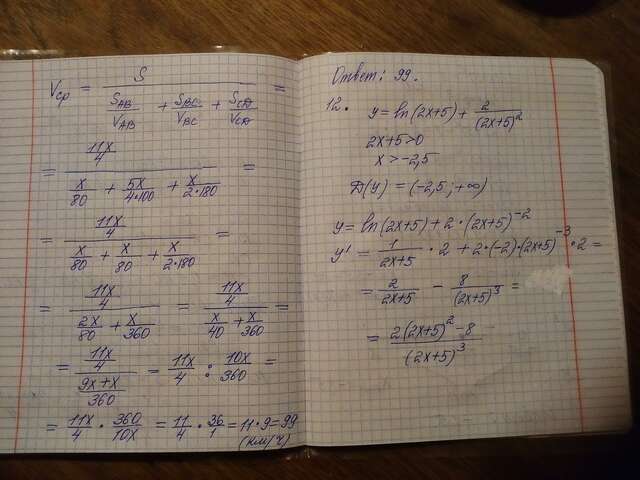 Vср = S / (S_AB/V_AB + S_BC/V_BC + S_CD/V_CD) =
= (11x/4) / (x/80 + 5x/(4·100) + x/(2·180)) =
= (11x/4) / (x/80 + x/80 + x/(2·180)) =
= (11x/4) / (2x/80 + x/360) = (11x/4) / (x/40 + x/360) =
= (11x/4) / ((9x+x)/360) = 11x/4 : 10x/360 =
= 11x/4 · 360/10x = 11/4 · 36/1 = 11·9 = 99
(км/ч)
Ответ: 99.
12. y = ln(2x+5) + 2/(2x+5)²
2x+5>0
x>-2,5
D(y) = (-2,5; +∞)
y = ln(2x+5) + 2·(2x+5)⁻²
y' = 1/(2x+5) · 2 + 2·(-2)·(2x+5)⁻³ · 2 =
= 2/(2x+5) - 8/(2x+5)³ =
= (2(2x+5)² - 8)/(2x+5)³